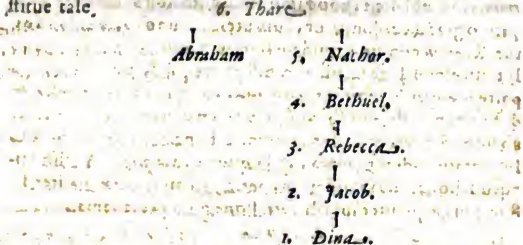 stitue tale.
6. Thare
Abraham 5. Nathor.
4. Bethuel.
3. Rebecca.
2. Jacob.
1. Dina.